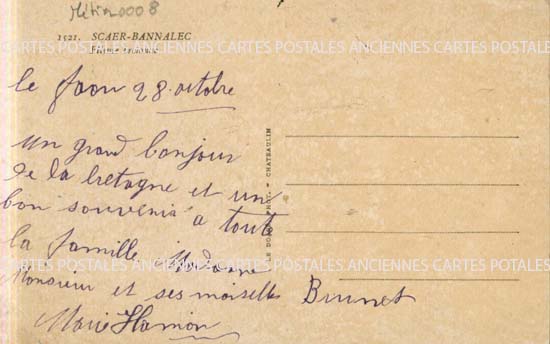 1521. SCAER-BANNALEC
ANCIENNES CARTES POSTALES ANCIENNES CARTES POSTALES
le faou 28 octobre
un grand bonjour
de la bretagne et un
bon souvenir a toute
la famille, Madame
Monsieur et ses moiselles Brunet
Marie Hamon
CHATEAULIN
ANCIENNES CARTES POSTALES ANCIENNES CARTES POSTALES